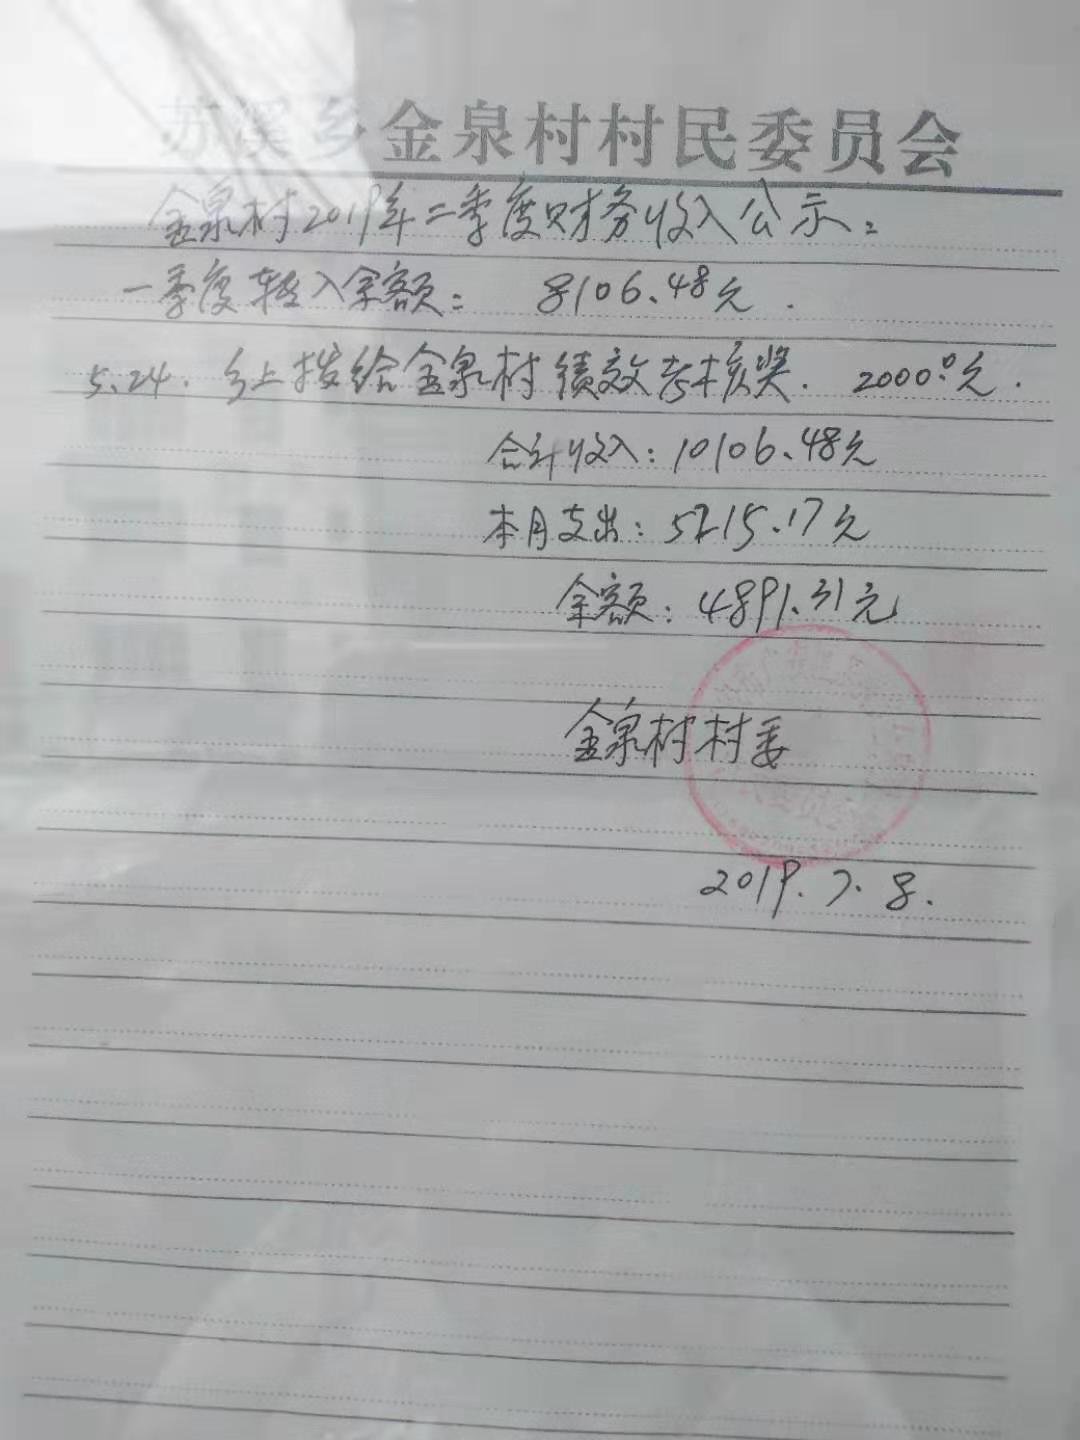 苏溪乡金泉村村民委员会
金泉村2019年二季度财务收入公示：
一季度转入余额： 8106.48元.
5.24. 乡上拨给金泉村绩效考核奖. 2000.0元.
合计收入：10106.48元
本月支出：5215.17元
余额：4891.31元
金泉村村委
2019.7.8.